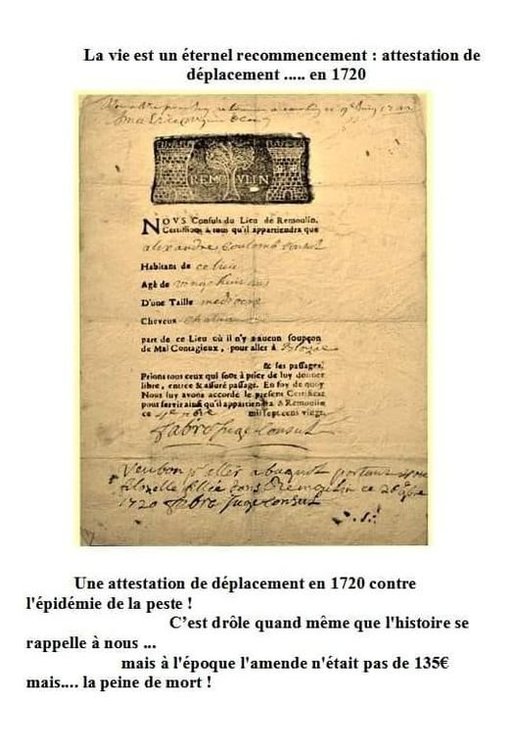 La vie est un éternel recommencement : attestation de
déplacement ..... en 1720
REMOVLIN
NOVS Consuls du Lieu de Remoulin,
Certifions à tous qu'il appartiendra que
alexandre coulomb consul
Habitant de ce lieu
Agé de
D'une Taille mediocre
Cheveux chatain
part de ce Lieu où il n'y a aucun soupçon
de Mal Contagieux, pour aller à Blozie
& ses passages,
Prions tous ceux qui sont à prier de luy donner
libre, entrée & assuré passage. En foy de quoy
Nous luy avons accordé le present Certificat
pour servir ainsi qu'il appartiendra à Remoulin
ce 4e mil sept cens vingt
fabre juge Consul
1720 fabre juge Consul
Une attestation de déplacement en 1720 contre
l'épidémie de la peste !
C'est drôle quand même que l'histoire se
rappelle à nous ...
mais à l'époque l'amende n'était pas de 135€
mais.... la peine de mort !